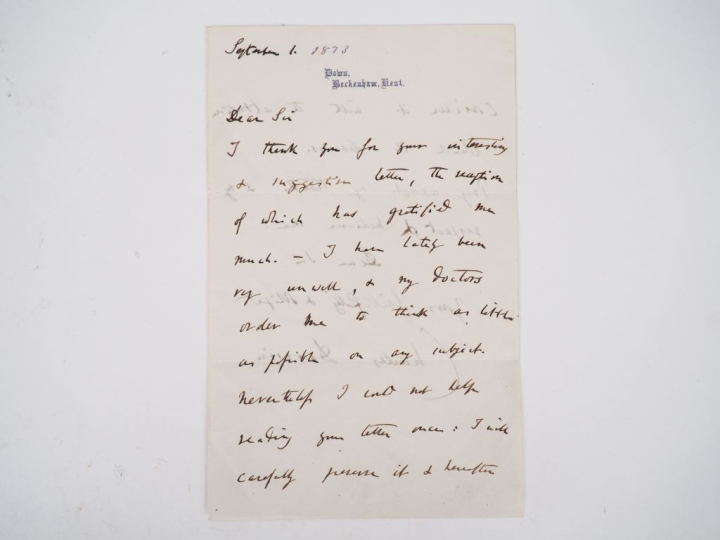 September 1. 1873
Down,
Beckenham, Kent.
Dear Sir
I thank you for your interesting
& suggestive letter, the reception
of which has gratified me
much. — I have lately been
very unwell, & my doctors
order me to think as little
as possible on any subject.
Nevertheless I could not help
reading your letter once: I will
carefully preserve it & hereafter